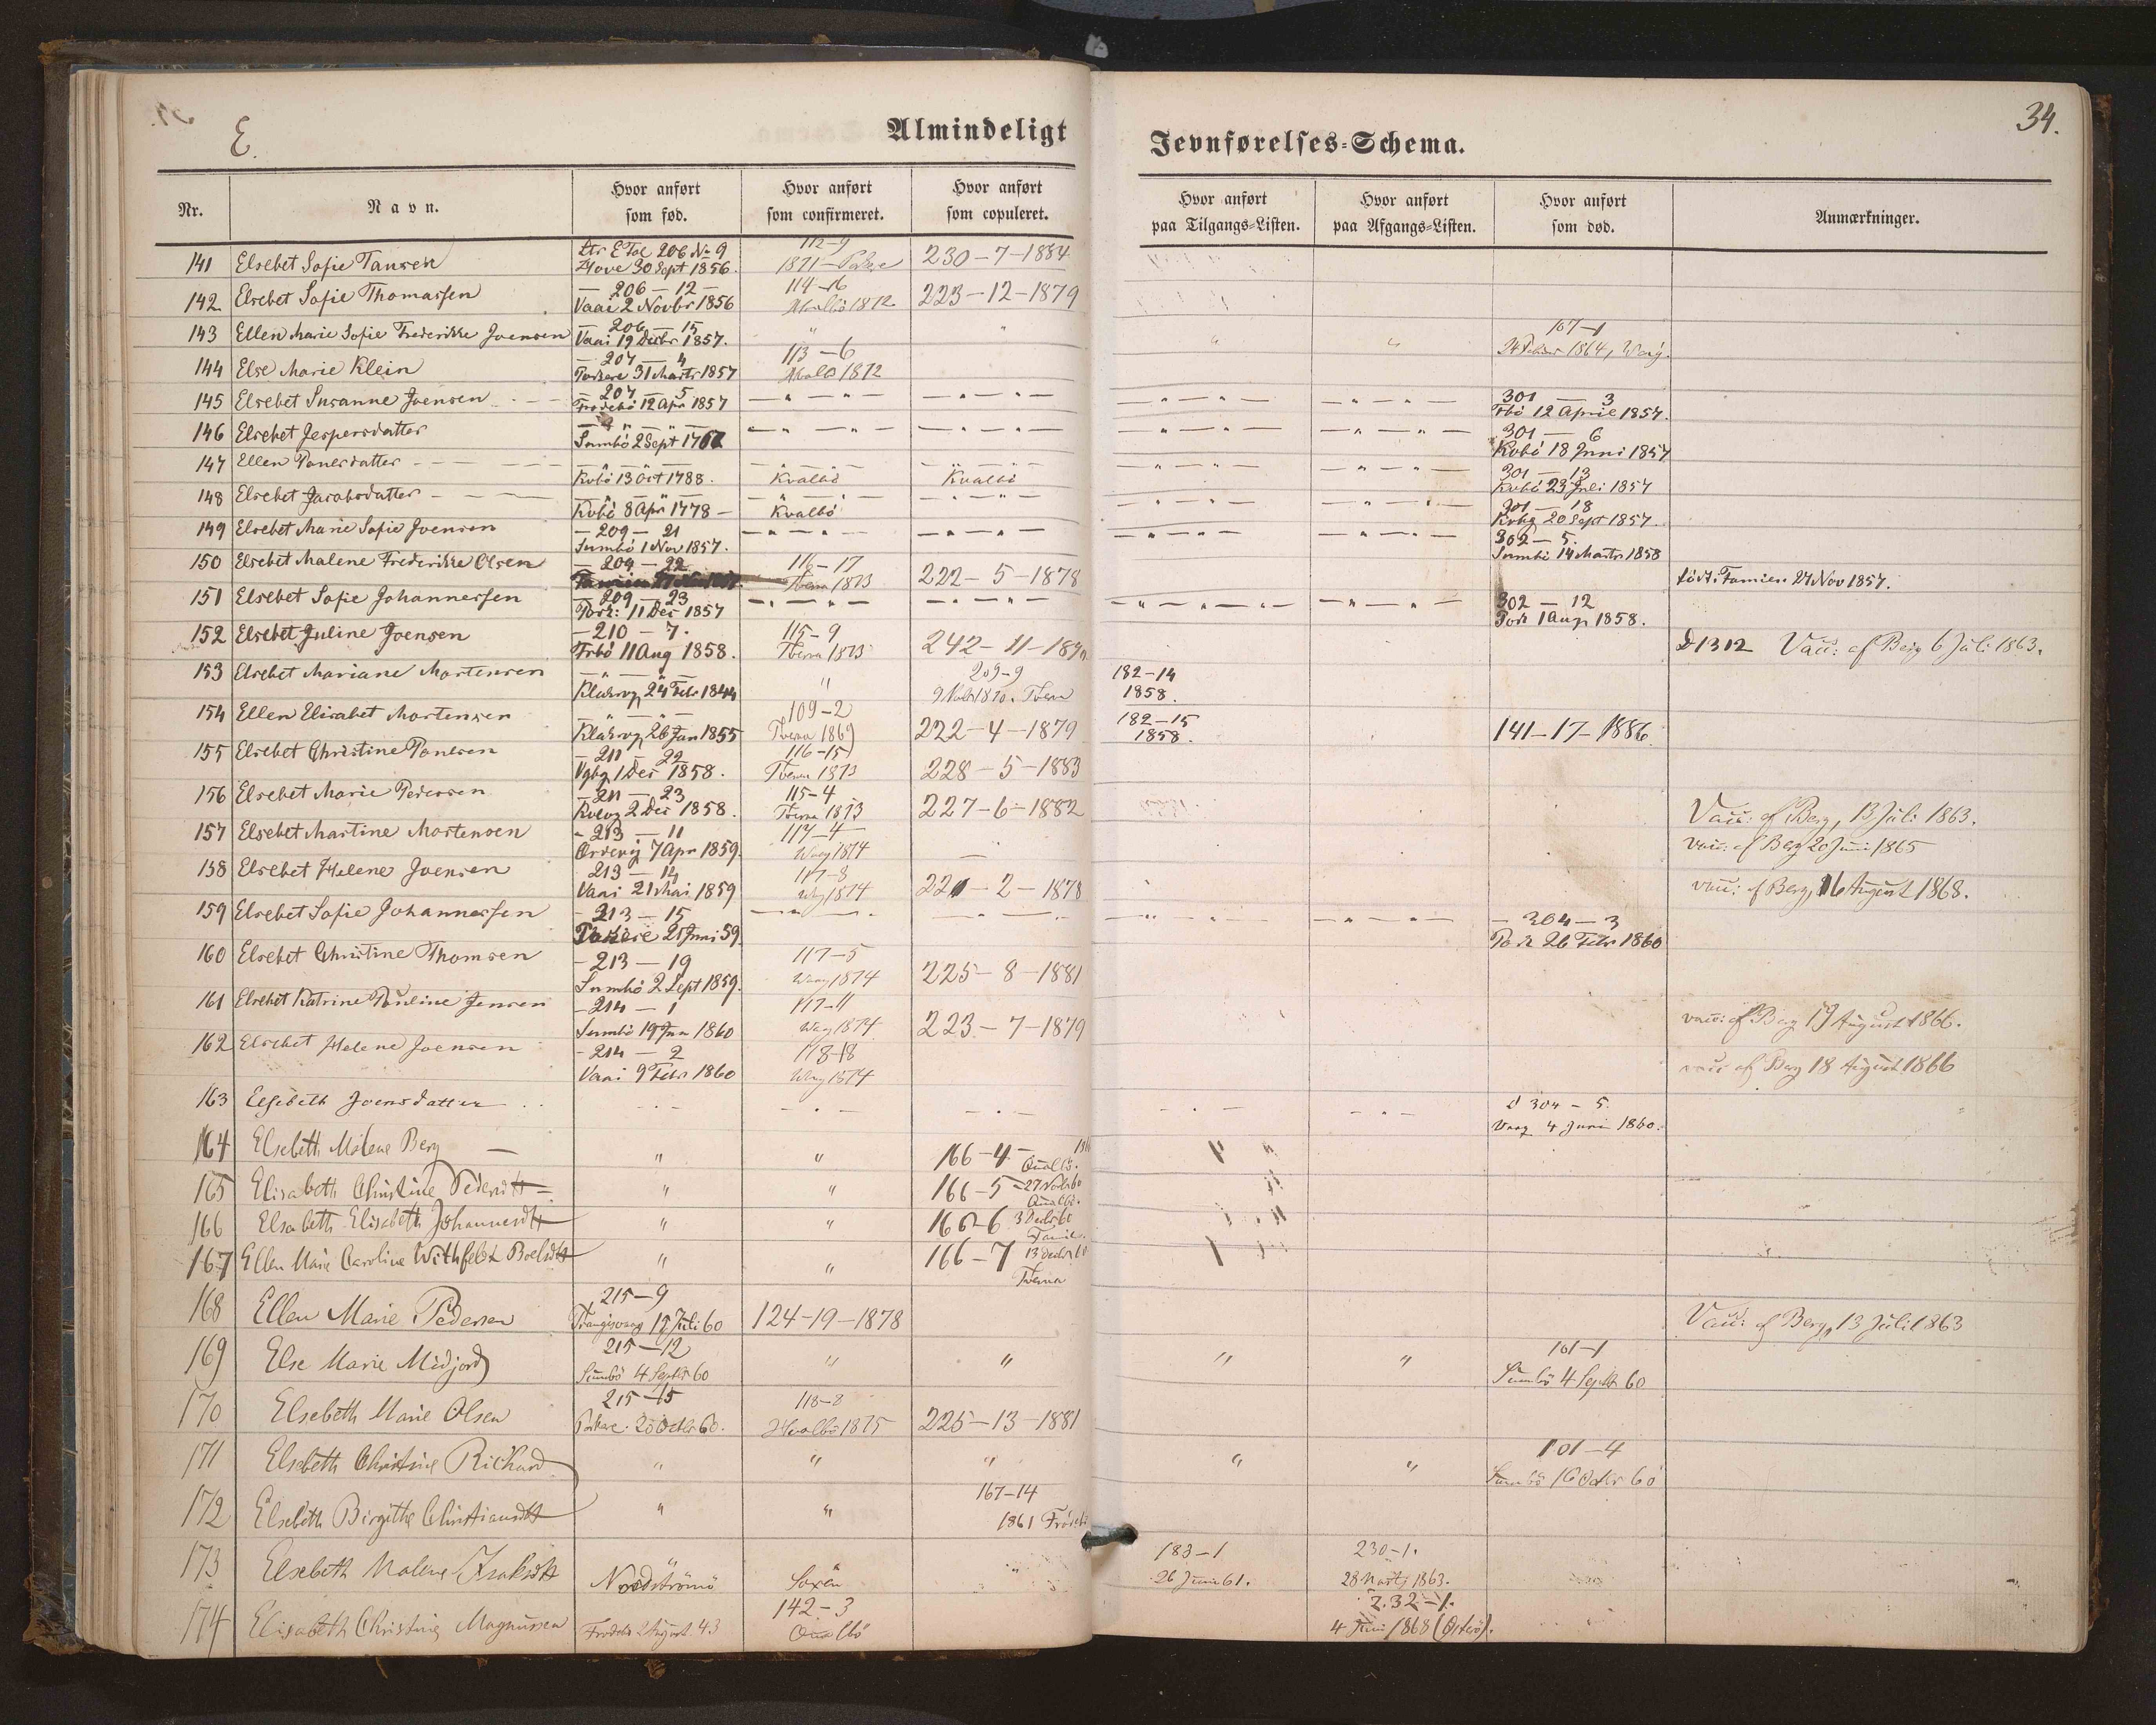 E.
Almindeligt Jevnførelses-Schema.
34.
Nr. | Navn. | Hvor anført som fød. | Hvor anført som confirmeret. | Hvor anført som copuleret. | Hvor anført paa Tilgangs-Listen. | Hvor anført paa Afgangs-Listen. | Hvor anført som død. | Anmærkninger.
141 Elsebet Sofie Tausen | 206 No 9 Hove 30 Sept 1856. | 112-9 1871 | 230-7-1884
142 Elsebet Sofie Thomassen | — 206 — 12 — Vaai 2 Novbr 1856 | 114-16 1872 | 223-12-1879
143 Ellen Marie Sofie Frederikke Joensen | — 206 — 15 Vaai 19 Decbr 1857. | " | " | " | " | 107-1 1864, Waag.
144 Else Marie Klein | — 207 — 4 Porkere 31 Marts 1857 | 113-6 1872
145 Elsebet Susanne Joensen | — 207 — 5 Frodebö 12 Apr 1857 | — " — " — | — " — " — | — " — " — | — " — " — | 301 — 3 Fbö 12 April 1857.
146 Elsebet Jespersdatter | — " — " — Sumbö 2 Sept | — " — " — | — " — " — | — " — " — | — " — " — | 301 — 6 Kvbö 18 Juni 1857
147 Ellen Poulsdatter | — " — " — Kvbö 13 Oct 1788. | — " — " — Kvalbö | — " — " — Kvalbö | — " — " — | — " — " — | 301 — 13 Kvbö 23 Juli 1857
148 Elsebet Jacobsdatter | — " — " — Kvbö 8 Apr 1778 — | — " — " — Kvalbö | — " — " — | — " — " — | — " — " — | 301 — 18 20 Sept 1857.
149 Elsebet Marie Sofie Joensen | — 209 — 21 Sumbö 1 Nov 1857. | — " — " — | — " — " — | — " — " — | — " — " — | 302 — 5. Sumbö 14 Marts 1858
150 Elsebet Malene Frederikke Olsen | — 209 — 22 | 116-17 Tverraa 1873 | 222-5-1878 | født i Famien 27 Nov 1857.
151 Elsebet Sofie Johannessen | — 209 — 23 Pork: 11 Dec 1857 | — " — " — | — " — " — | — " — " — | — " — " — | 302 — 12 Pork 1 Aug 1858.
152 Elsebet Juline Joensen | — 210 — 7. Frbö 11 Aug 1858. | 115-9 Tverraa 1873 | 242-11- | D 1312 Vacc: af Berg 6 Juli 1863.
153 Elsebet Mariane Mortensen | — " — " — Klaksvg 24 Febr 1844 | " | 209-9 9 1870. Tveraa | 182-14 1858.
154 Ellen Elisabet Mortensen | — " — " — Klaksvg 26 Jan 1855 | 109-2 Tveraa 1869 | 222-4-1879 | 182-15 1858. | 141-17-1886
155 Elsebet Christine Poulsen | — 211 — 22 Vgbg 1 Dec 1858. | 116-15 Tveraa 1873 | 228-5-1883
156 Elsebet Marie Pedersen | — 211 — 23 2 Dec 1858. | 115-4 Tveraa 1873 | 227-6-1882 | Vacc: af Berg, 13 Juli 1863.
157 Elsebet Martine Mortensen | — 213 — 11 Ördevig 7 Apr 1859. | 117-4 Waag 1874 | — | vacc. af Berg 20 Juni 1865
158 Elsebet Helene Joensen | 213 — 14 Vaai 21 Mai 1859 | 117-8 Wag 1874 | 221-2-1878 | vacc: af Berg, 16 August 1868.
159 Elsebet Sofie Johannessen | — 213 — 15 Porkere 21 Juni 59 | — " — | — " — | — " — " — | — " — " — | — 304 — 3 Pork 26 Febr 1860
160 Elsebet Christine Thomsen | — 213 — 19 Sumbö 2 Sept 1859. | 117-5 Waag 1874 | 225-8-1881
161 Elsebet Katrine Pauline Jensen | — 214 — 1 Sumbö 19 Jan 1860 | 117-11 Wag 1874 | 223-7-1879 | vacc: af Berg 19 August 1866.
162 Elsebet Helene Joensen | — 214 — 2 Vaai 9 Febr 1860 | 118-18 Wag 1874 | vacc af Berg 18 August 1866
163 Elsebeth Joensdatter | — " — | — " — | — " — | — " — | — " — | d 304 — 5. Vaag 4 Juni 1860.
164 Elsebeth Malene Berg — | " | " | 166-4- Qualbö. | " "
165 Elisabeth Christine Pedersdtt | " | " | 166-5 27 Novbr 60 Qualbö. | "
166 Elsabeth Elisabeth Johannesdtt | " | " | 166-6 3 Decbr 60 Famien. | " "
167 Ellen Marie Caroline Withfeldt Boelsdtt | " | " | 166-7 13 Decbr 60 Tveraa
168 Ellen Marie Pedersen | 215-9 Trangisvaag 17 Juli 60 | 124-19-1878 | Vacc: af Berg, 13 Juli 1863
169 Else Marie Midjord | 215-12 Sumbö 4 Septbr 60 | " | " | " | " | 101-1 Sumbö 4 Septbr 60
170 Elsebeth Marie Olsen | 215-15 Porkere 25 Octbr 60. | 118-8 Hvalbö 1875 | 225-13-1881
171 Elsebeth Christine Richard | " | " | " | " | " | 101-4 Sumbö 16 Octbr 60
172 Elsebeth Birgitha Christiansdtt | " | " | 167-14 1861 Frodebö
173 Elsebeth Malene Isaksdtt | Nordströmö | " | " | 183-1 26 Juni 61. | 230-1. 28 Marts 1863.
174 Elisabeth Christine Magnussen | Frodebö 2 August 43 | 142-3 Qualbö | 232-1. 4 Juni 1868 (Österö).